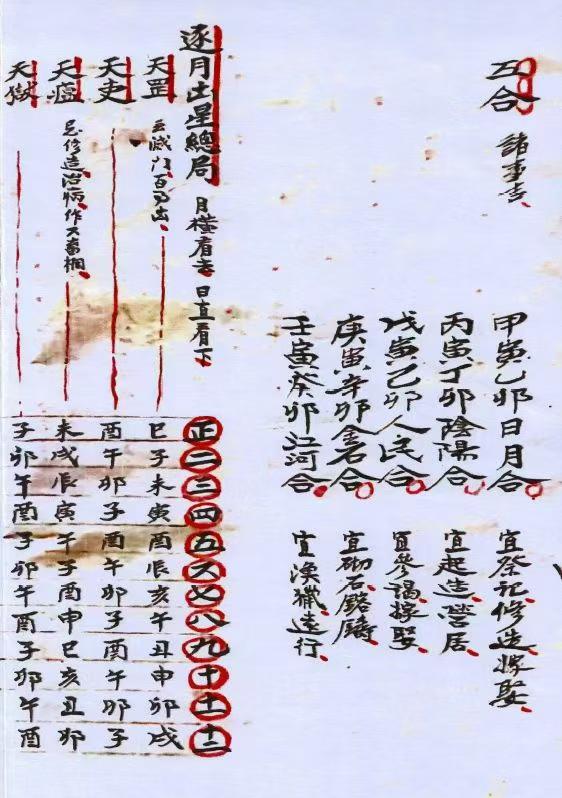 五合 諸事吉
甲寅乙卯日月合 宜祭祀修造嫁娶
丙寅丁卯陰陽合 宜起造營居
戊寅己卯人民合 宜參謁嫁娶
庚寅辛卯金石合 宜砌石銘鑄
壬寅癸卯江河合 宜漁獵遠行
逐月凶星總局 月橫看去 日直看下 正二三四五六七八九十十一十二
天罡 主滅門百事凶 巳子未寅酉辰亥午丑申卯戌
天吏 酉午卯子酉午卯子酉午卯子
天瘟 忌修造治病作六畜欄 未戌辰寅午子酉申巳亥丑卯
天獄 子卯午酉子卯午酉子卯午酉